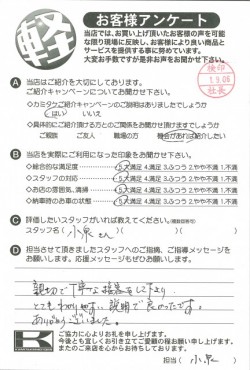 軽
お客様アンケート
当店では、お買い上げ頂いたお客様の声を可能
な限り現場に反映し、お客様により良い商品と
サービスを提供する事に努めています。
大変お手数ですが是非お声をお聞かせ下さい。
検印
1.9.06
社長
A 当店はご紹介を大切にしております。
ご紹介キャンペーンについてお聞かせ下さい。
◇カミタケご紹介キャンペーンのご説明はありましたでしょうか
はい いいえ
◇具体的にご紹介頂ける方とのご関係をお聞かせ頂けますでしょうか
ご親族 ご友人 職場の方 機会があれば紹介したい
B 当店を実際にご利用になった印象をお聞かせ下さい。
◇総合的な満足度 5.大満足 4.満足 3.ふつう 2.やや不満 1.不満
◇スタッフの対応 5.大満足 4.満足 3.ふつう 2.やや不満 1.不満
◇お店の雰囲気、清掃 5.大満足 4.満足 3.ふつう 2.やや不満 1.不満
◇納車時のお車の状態 5.大満足 4.満足 3.ふつう 2.やや不満 1.不満
C 評価したいスタッフがいれば教えてください。(複数回答可)
スタッフ名( 小泉さん )
D 担当させて頂きましたスタッフへのご指摘、ご指導メッセージを
お願いします。応援メッセージもぜひお願いします。
親切で丁寧な接客をして下さり
とても わかりやすい 説明で良かったです。
ありがとうございました。
K
ご協力に心よりお礼を申し上げます。
今後とも宜しくお引き立てご愛顧の程お願い申し上げます。
またのご来店を心からお待ちしております。
担当( 小泉 )